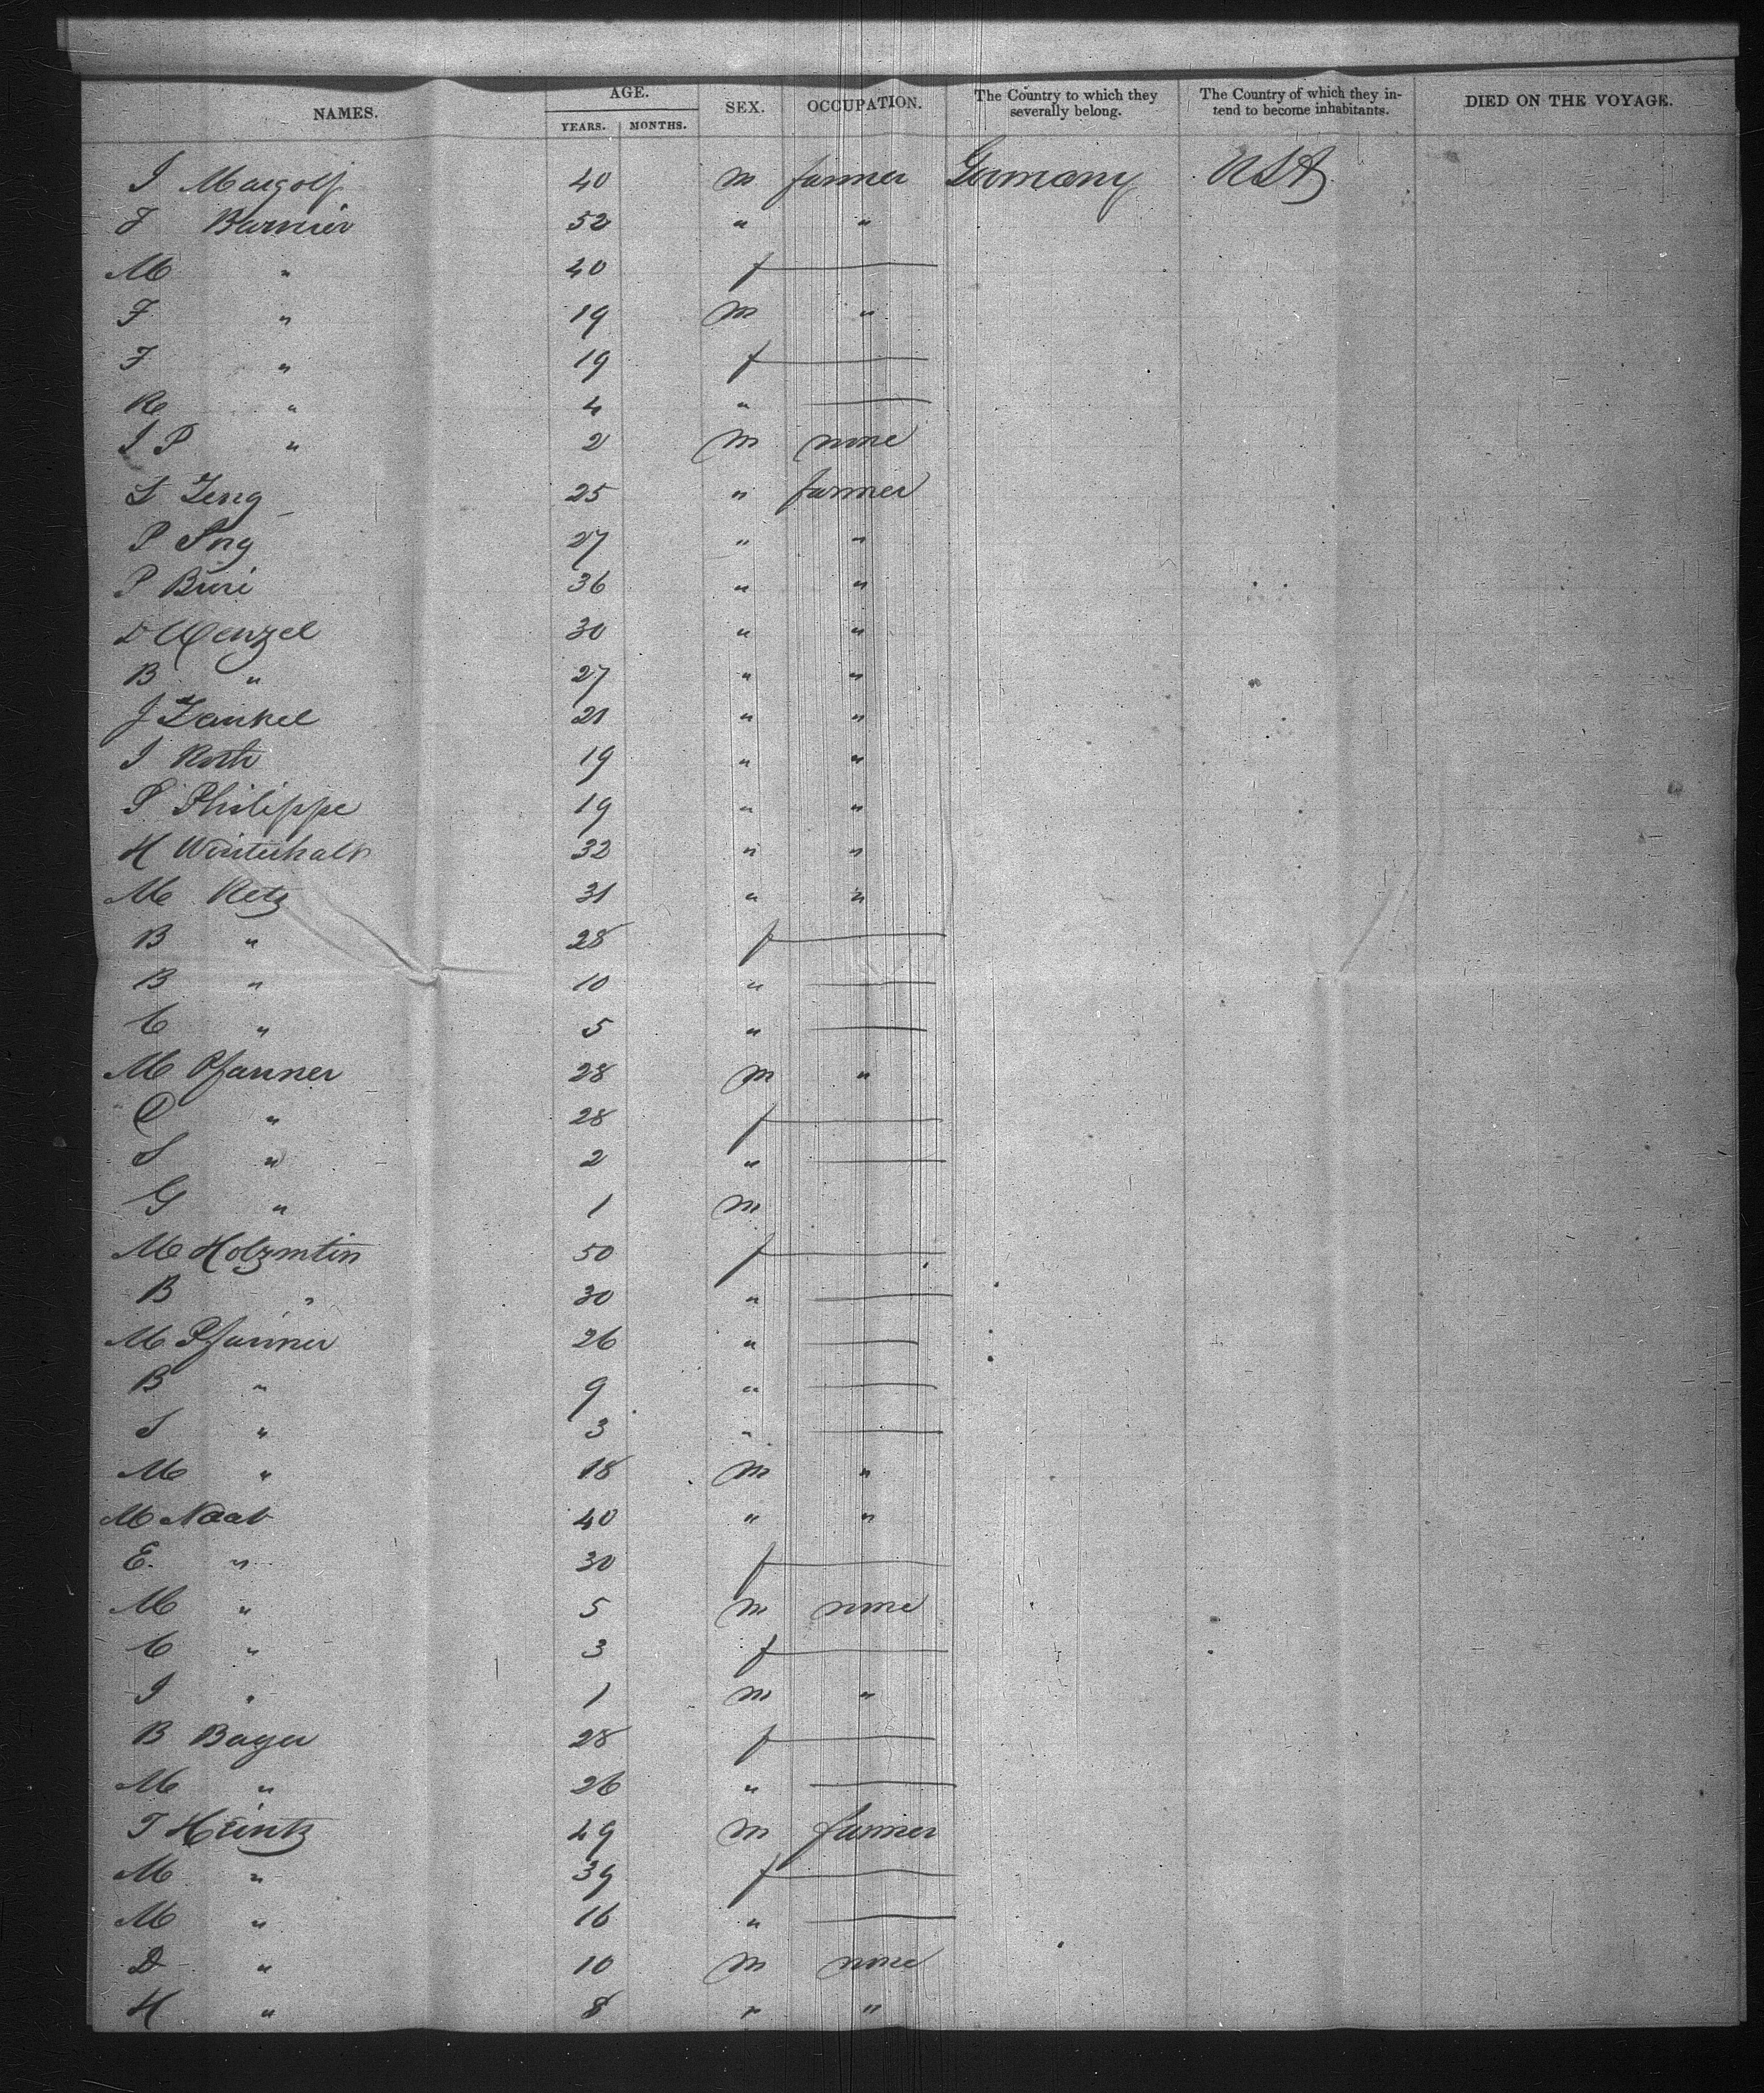 NAMES. AGE. YEARS. MONTHS. SEX. OCCUPATION. The Country to which they severally belong. The Country of which they intend to become inhabitants. DIED ON THE VOYAGE.
I Margolf 40 m farmer Germany USA
F Barnier 52 " "
M " 40 f
F " 19 m "
F " 19 f
R " 4 "
I P " 2 m none
S Zeng 25 " farmer
P Ing 27 " "
P Buri 36 " "
D Wenzel 30 " "
B " 27 " "
J Zankel 21 " "
I Roth 19 " "
P Philippe 19 " "
H Winterhalt 32 " "
M Retz 31 " "
B " 28 f
B " 10 "
C " 5 "
M Pfanner 28 m "
C " 28 f
S " 2 "
G " 1 m
M Holzmtin 50 f
B " 30 "
M Pfanner 26 "
B " 9 "
S " 3 "
M " 18 m "
M Naab 40 " "
E. " 30 f
M " 5 m none
C " 3 f
I " 1 m "
B Bayer 28 f
M " 26 "
T Heintz 49 m farmer
M " 39 f
M " 16 "
D " 10 m none
H " 8 " "